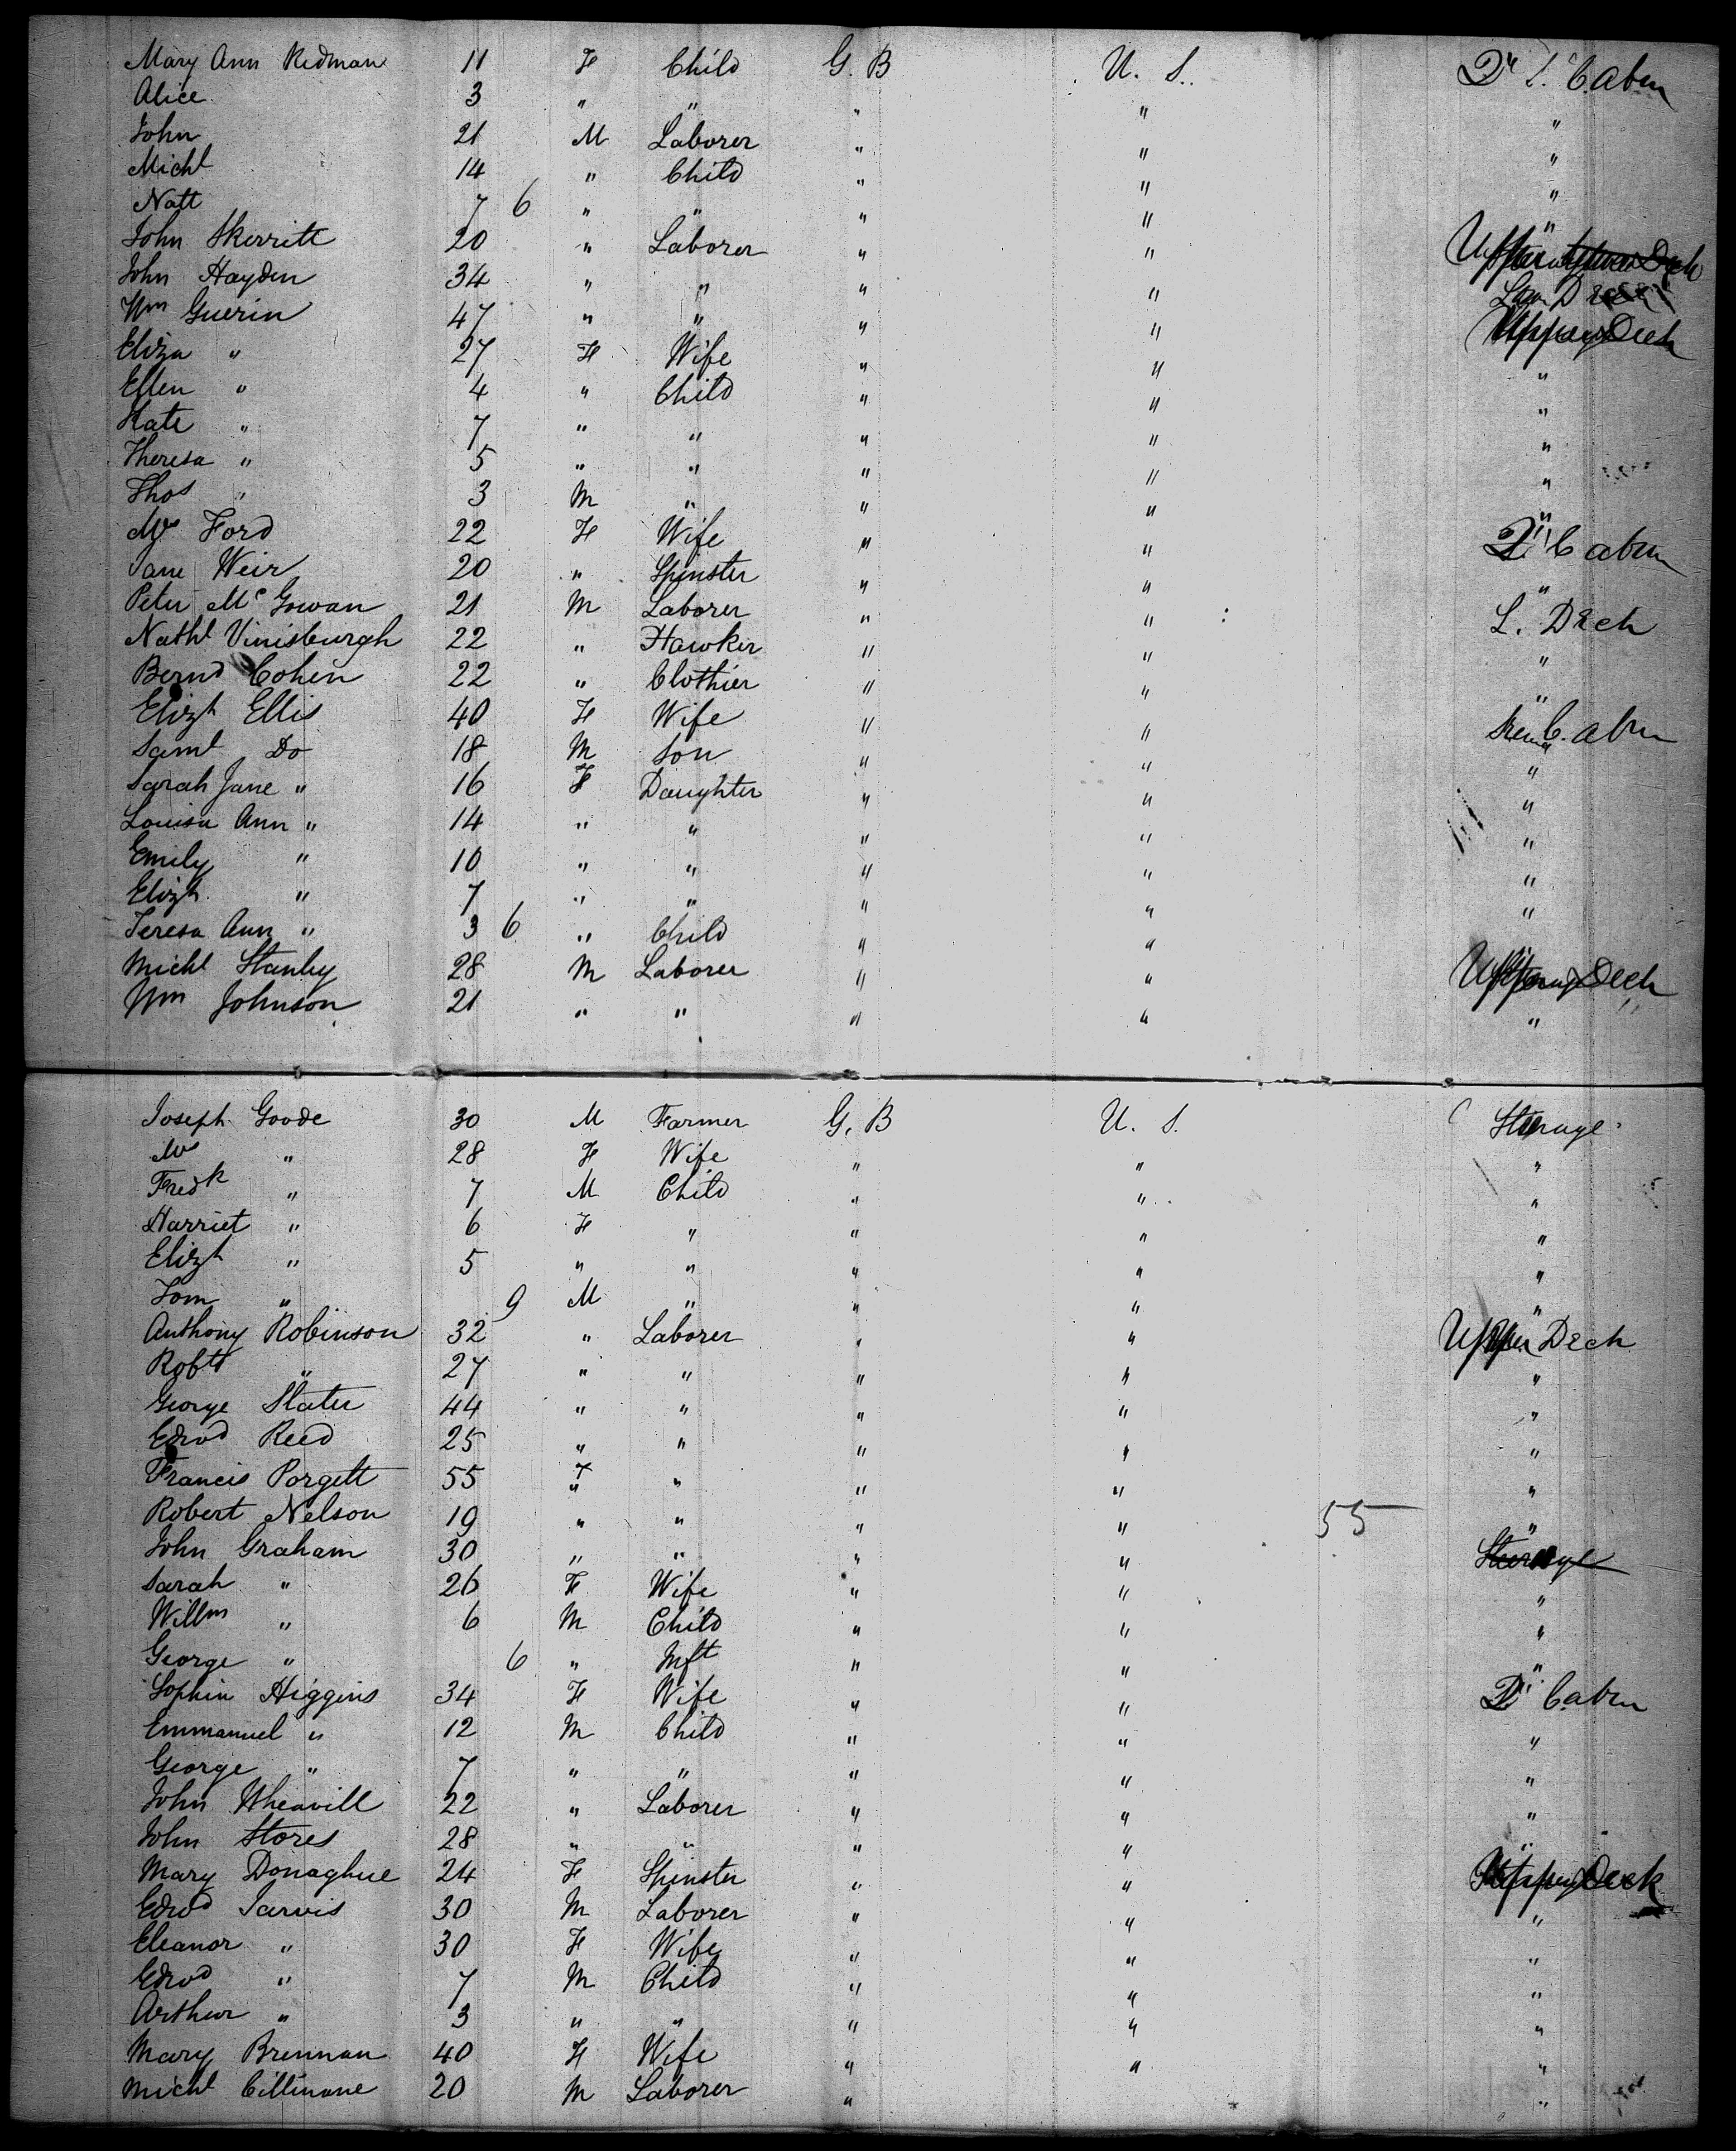 Mary Ann Redman 11 F Child G. B U. S. Cabin
Alice 3 " " " " "
John 21 M Laborer " " "
Michl 14 " Child " " "
Natt 7 6 " " " " "
John Skerritt 20 " Laborer " " Deck
John Hayden 34 " " " "
Wm Guerin 47 " " " " Upper Deck
Eliza " 27 F Wife " " "
Ellen " 4 " Child " " "
Kate " 7 " " " " "
Theresa " 5 " " " " "
Thos " 3 M " " " "
Mrs Ford 22 F Wife " " Cabin
Jane Weir 20 " Spinster " " "
Peter Mc Gowan 21 M Laborer " " L. Deck
Nathl Vinisburgh 22 " Hawker " " "
Bernd Cohen 22 " Clothier " " "
Elizh Ellis 40 F Wife " " Cabin
Saml Do 18 M Son " " "
Sarah Jane " 16 F Daughter " " "
Louisa Ann " 14 " " " " "
Emily " 10 " " " " "
Elizh " 7 " " " " "
Teresa Ann " 3 6 " Child " " "
Michl Stanley 28 M Laborer " " Upper Deck
Wm Johnson 21 " " " " "
Joseph Goode 30 M Farmer G. B U. S. Sterage
Mrs " 28 F Wife " " "
Fredk " 7 M Child " " "
Harriet " 6 F " " " "
Elizh " 5 " " " " "
Tom " 9 M " " " "
Anthony Robinson 32 " Laborer " " Upper Deck
Robt " 27 " " " " "
George Slater 44 " " " " "
Edwd Reed 25 " " " " "
Francis Porgett 55 " " " " "
Robert Nelson 19 " " " " 55 "
John Graham 30 " " " " Steerage
Sarah " 26 F Wife " " "
Willm " 6 M Child " " "
George " 6 " Inft " " "
Sophia Higgins 34 F Wife " " Cabin
Emmanuel " 12 M Child " " "
George " 7 " " " " "
John Wheavill 22 " Laborer " " "
John Stores 28 " " " " "
Mary Donaghue 24 F Spinster " " Upper Deck
Edwd Jarvis 30 M Laborer " " "
Eleanor " 30 F Wife " " "
Edwd " 7 M Child " " "
Arthur " 3 " " " " "
Mary Brennan 40 F Wife " " "
Michl Cillinane 20 M Laborer " "